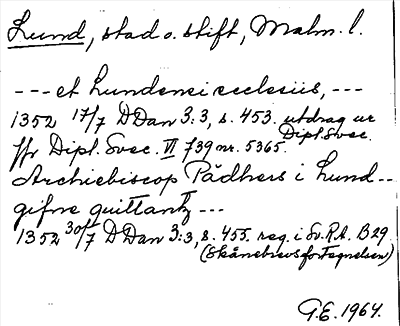 Lund, stad o. stift, Malm. l.
--- et Lundensi ecclesiis, ---
1352 17/7 DDan 3:3, s. 453. utdrag ur
Dipl. Svec.
fr Dipl. Svec. VI 739 nr. 5365.
Archiebiscop Pädhers i Lund --
gifne quittantz ---
1352 30/7 DDan 3:3, s. 455. reg. i Sv.R.A. B 29
(Skånebrevsförtegnelsen)
G.E. 1964.